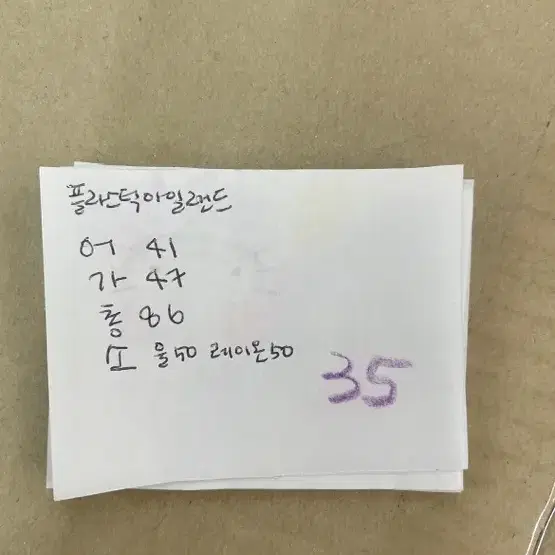 플라스틱아일랜드
어 41
가 47
총 86
소 울50 레이온50
35